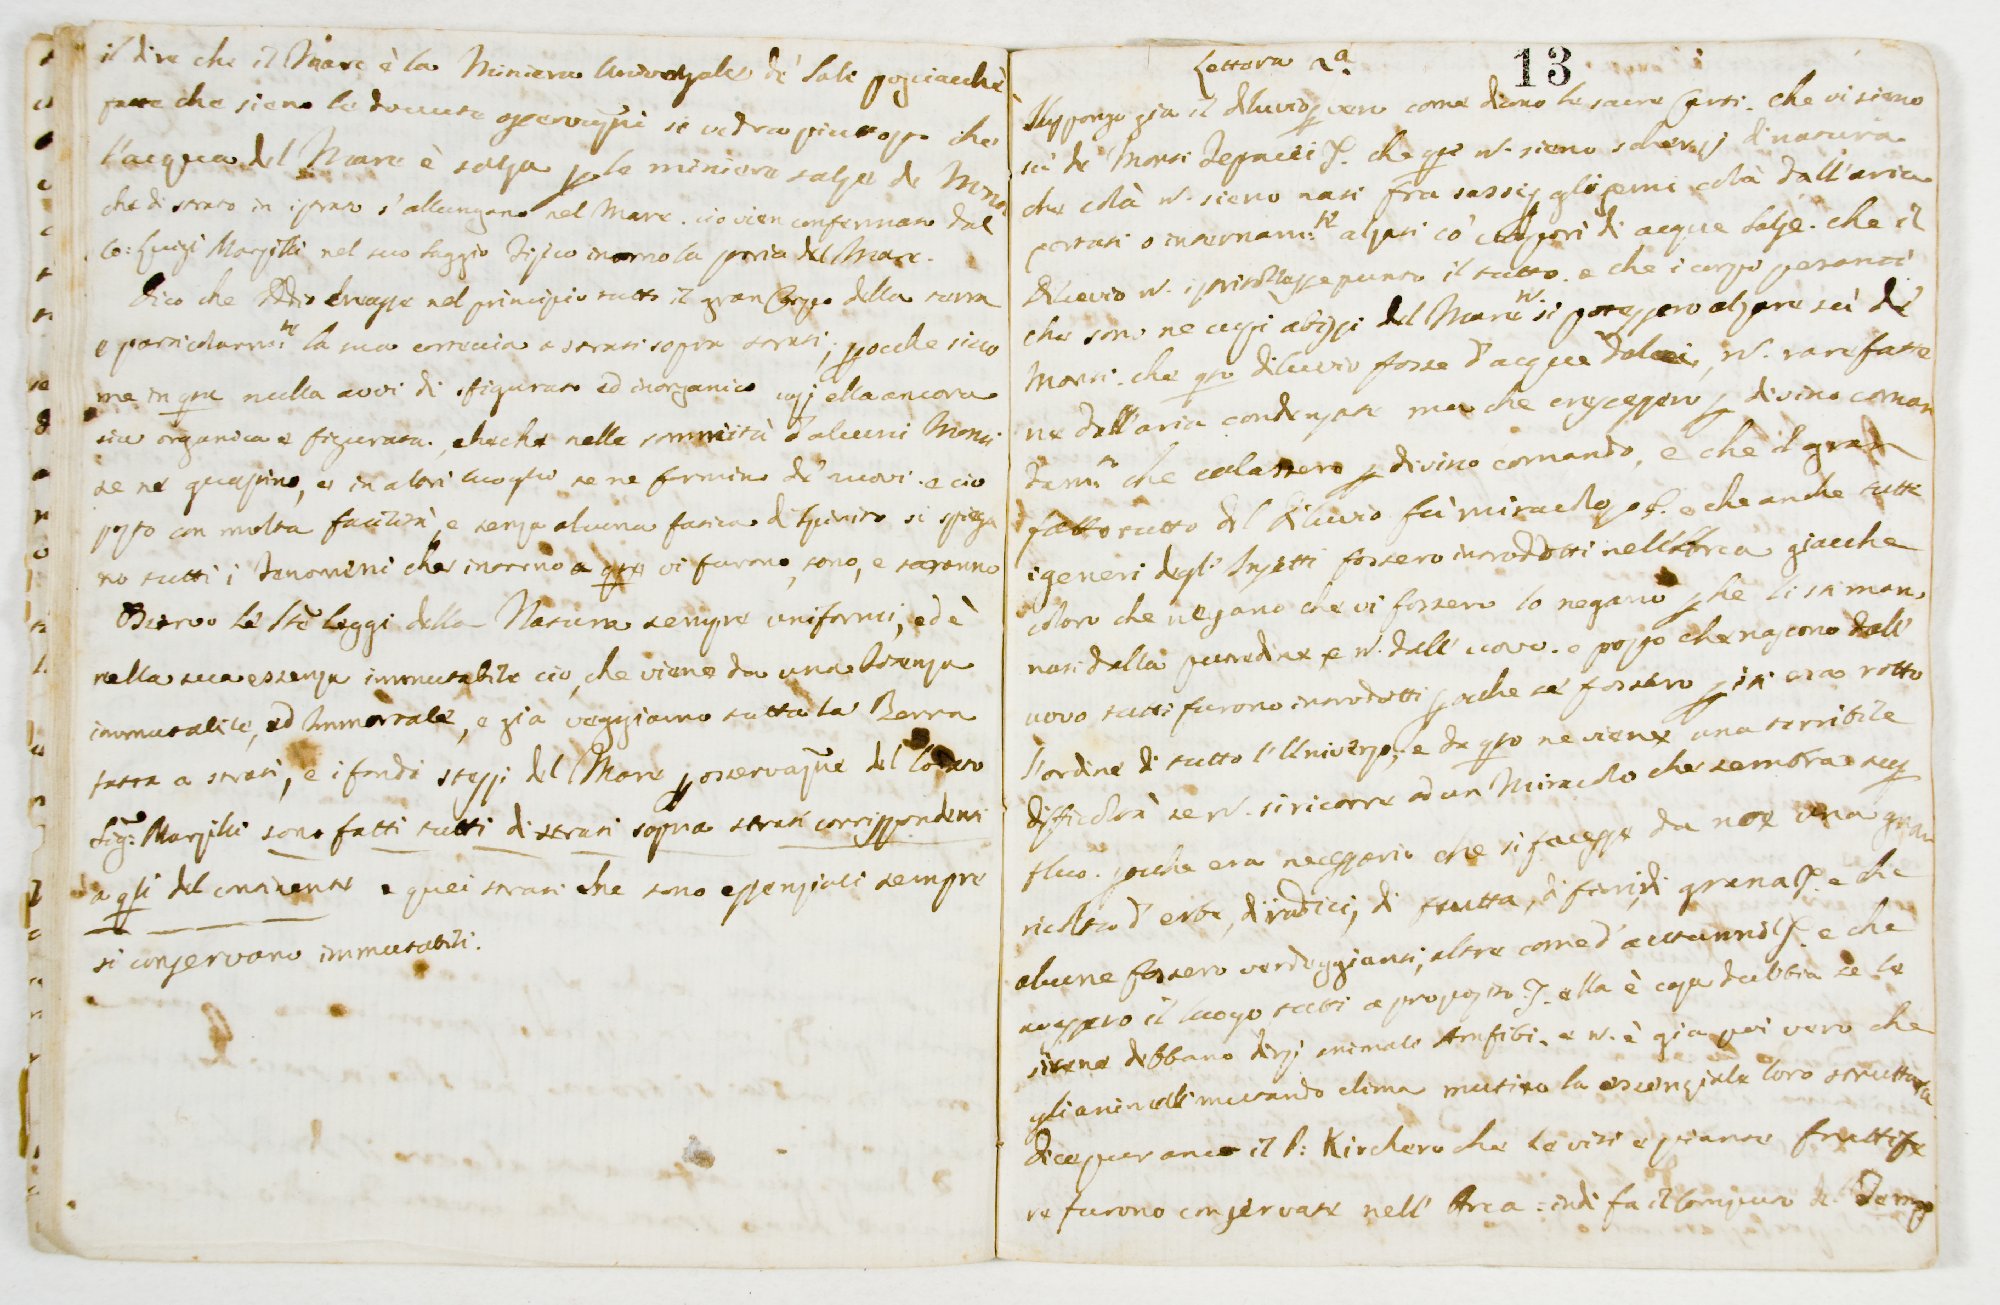 il dire che il Mare è la Miniera Universale de' Sali posciacchè
fatte che sieno le dovute osservaz̃ni si vedrà piuttosto che
l'acqua del Mare è salsa p le miniere salse de Monti
che di strato in istrato s'allungano nel Mare. ciò vien confermato dal
Co: Luigi Marsilli nel suo Saggio Fisico intorno la storia del Mare.
Dico che Iddio creasse nel principio tutto il gran Corpo della terra
e particolarm:te la sua corteccia a strati sopra strati; pocche sicco
me in q̃sta nulla avvi di sfigurato ed inorganico così ella ancora
sia organica e figurata. checche nelle sommità d'alcuni Monti
se ne guastino, e in altri luoghi se ne formino de' nuovi. e ciò
posto con molta facilità, e senza alcuna fatica di Spirito si spiega
no tutti i Fenomeni che intorno a q̃sta vi furono, sono, e saranno
Osservo le st̃e leggi della Natura sempre uniformi, ed è
nella sua essenza immutabile ciò, che viene da una Potenza
immutabile, ed Immortale, e già veggiamo tutta la Terra
fatta a strati, e i fondi stessi del Mare p osservaz̃ne del lodato
Sig:r Marsilli sono fatti tutti di strati sopra strati corrispondenti
a q̃lli del continente e quei strati che sono essenziali sempre
si conservano immutabili.
Lettera 2a.
13
Suppongo già il diluvio p vero come dicono le sacre Carti. che vi sieno
sù de' Monti Testacei &. che q̃sti n. sieno scherzi di natura
che colà n. sieno nati fra sassi p gli semi colà dall'aria
portati o internam:te alzati co' vapori di acque salse. che il
Diluvio n. istritolasse punto il tutto. e che i corpi pesanti
che sono ne cupi abissi del Mare n. si potessero alzare sù de'
Monti. che q̃sto diluvio fosse d'acque dolci, n. rarefatte
ne dall'aria condensate ma che crescessero p divino coman
dam:to che calassero p divino comando, e che il gran
fatto tutto del diluvio fù miracoloso &. e che anche tutti
i generi degl'Insetti fossero introdotti nell'Arca giacche
coloro che negano che vi fossero lo negano p che li stiman
nati dalla putredine e n. dall'uovo. e posto che nascono dall'
uovo tutti furono introdotti p che se' fossero p iti era rotto
l'ordine di tutto l'Universo, e da q̃sto ne viene una terribile
difficoltà se n. si ricorre ad un Miracolo che sembra sup
fluo. pocche era necessario che si facesse da noe una gran
ricolta d'erbe, di radici, di frutta, di fiori, di grana &. e che
alcune fossero verdeggianti, altre come d'autunno &. e che
avessero il luogo tutti a proposito &. ella è cosa dubbia se le
sirene debbano dirsi animali Amfibi. e n. è già poi vero che
gli animali mutando clima mutino la essenziale loro struttura
Dice pur anco il P: Kirchero che le viti e piante fruttife
re furono conservate nell'Arca: indi fa il computo del Tempo